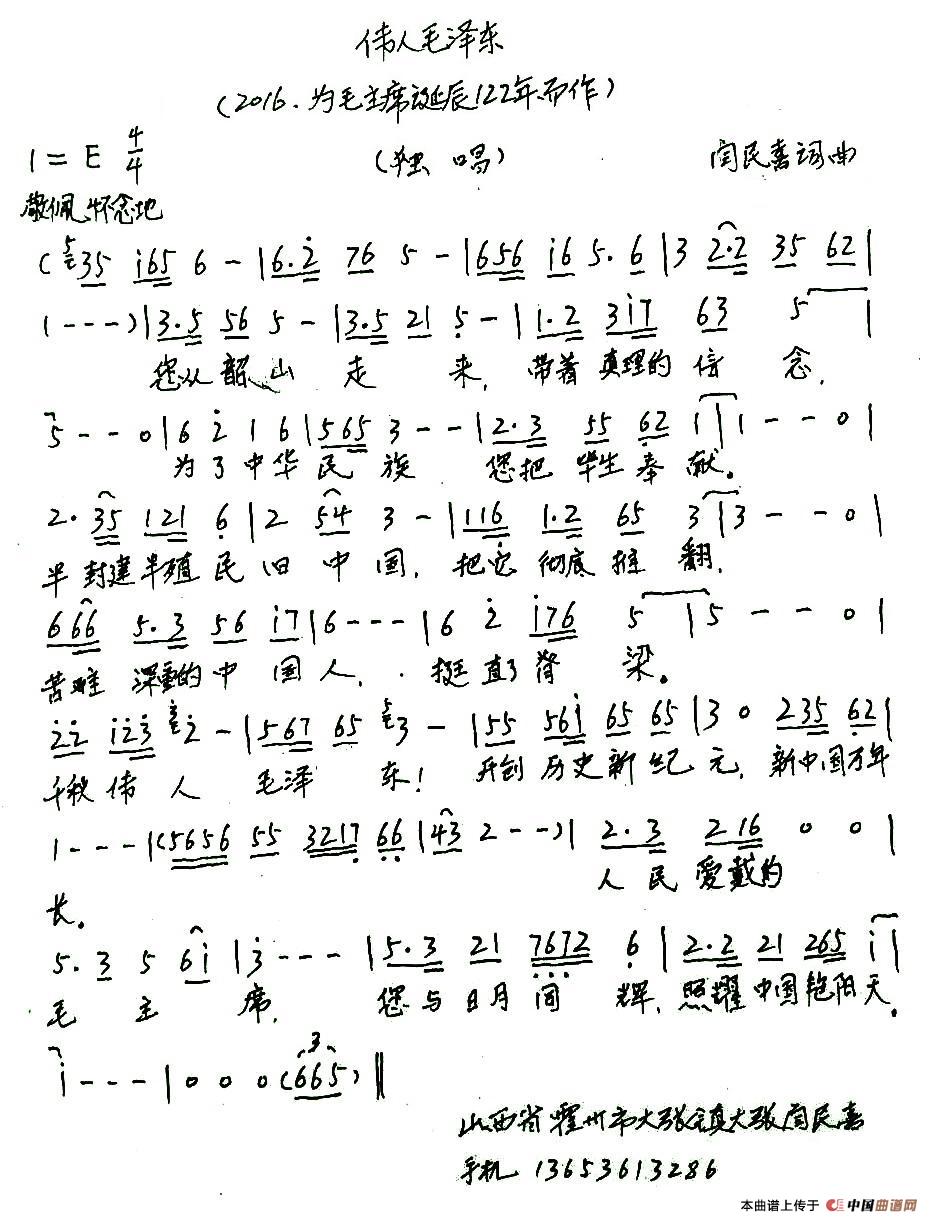 伟人毛泽东
(2016.为毛主席诞辰122年而作)
1=E 4/4 (独唱) 闫民喜词曲
敬佩怀念地
(5 35 i65 6 - |6.2 76 5 - |656 i6 5.6 |3 2.2 35 62|
1---)|3.5 56 5 - |3.5 21 5 - |1.2 3i7 63 5 |
您从韶山走来,带着真理的信念,
5 - - 0|6 2 1 6|565 3 - - |2.3 55 62 1|1 - - 0|
为了中华民族 您把毕生奉献。
2. 35 121 6|2 54 3 - |116 1.2 65 3|3 - - 0|
半封建半殖民旧中国,把它彻底推翻,
666 5.3 56 i7|6 - - - |6 2 i76 5 |5 - - 0|
苦难深重的中国人,挺直了脊梁。
22 i23 3 2 - |567 65 5 3 - |55 56i 65 65|3 0 235 62|
千秋伟人毛泽东!开创历史新纪元,新中国万年
1 - - - |(5656 55 3217 66|43 2 - -)|2.3 216 0 0|
长。 人民爱戴的
5. 3 5 6i |3 - - - |5.3 21 7672 6|2.2 21 265 i|
毛主席,您与日月同辉,照耀中国艳阳天。
i - - - |0 0 0 (3 665)||
山西省霍州市大张镇大张闫民喜
手机 13653613286
本曲谱上传于 中国曲谱网